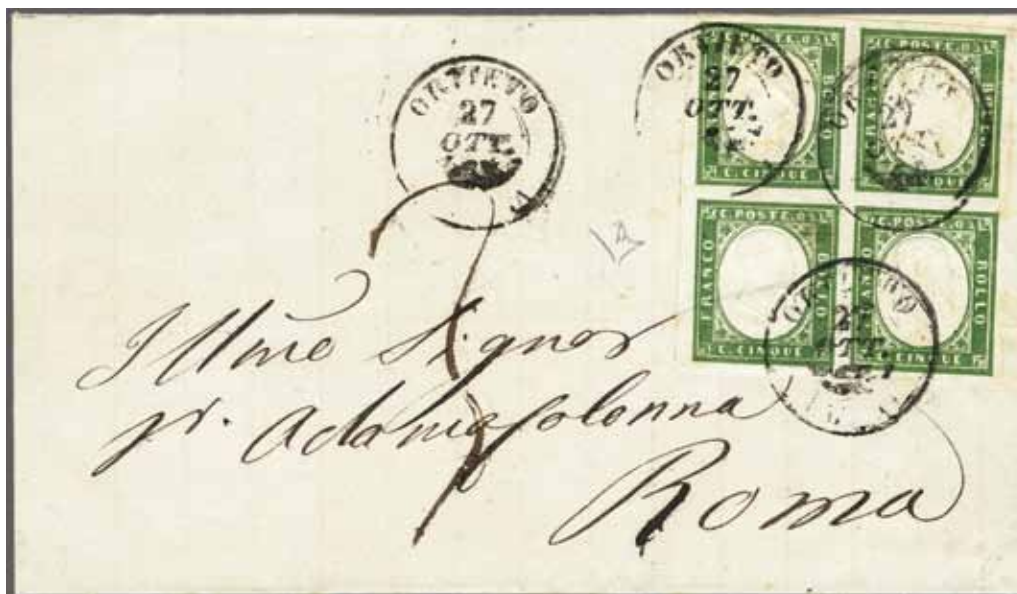 ORVIETO
27
OTT.
ORVIETO
27
OTT.
C. POSTE 05
BOLLO
C. CINQUE
C. POSTE 05
FRANCO
BOLLO
C. CINQUE
27
C. POSTE 05
FRANCO
BOLLO
C. CINQUE
C. POSTE 05
FRANCO
BOLLO
C. CINQUE
ORVIETO
27
OTT.
Illmo Signor
pr. Adamo Colonna
Roma